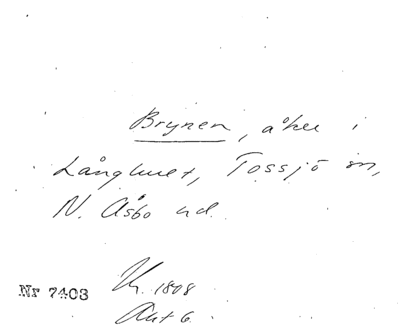 Brynen, åker i
Långhult, Tossjö sn,
N. Åsbo hd.
Nr 7403
1808
Akt 6.